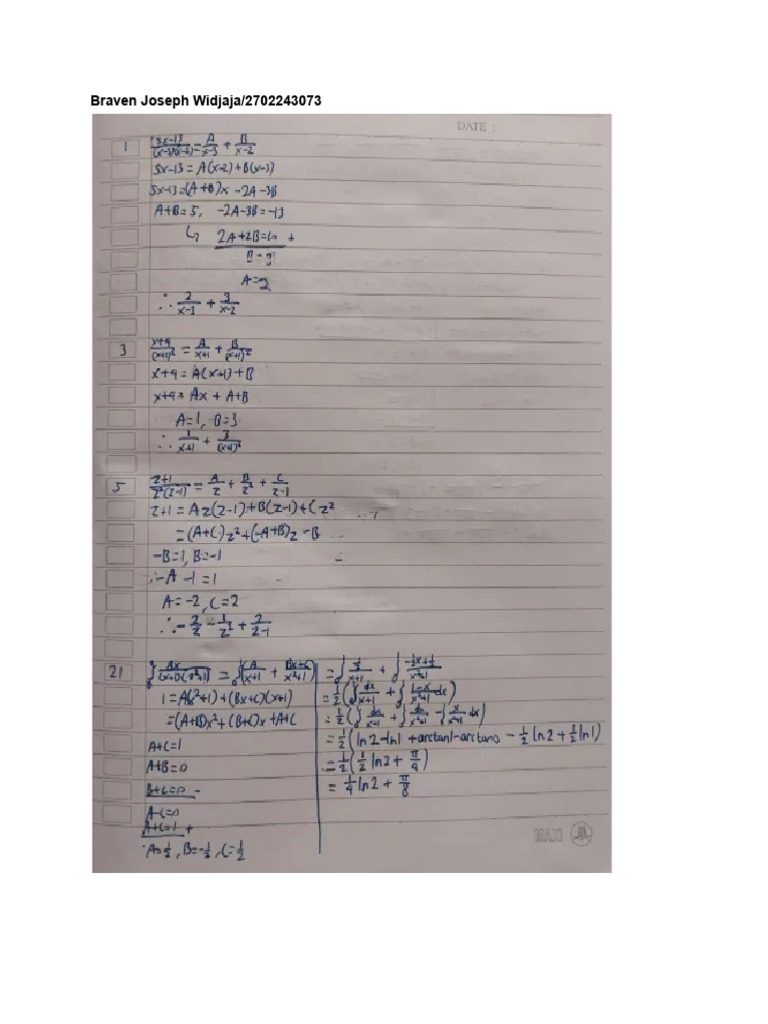 Braven Joseph Widjaja/2702243073
DATE :
1 5x-13/(x-3)(x-2) = A/x-3 + B/x-2
5x-13 = A(x-2) + B(x-3)
5x-13 = (A+B)x -2A -3B
A+B = 5, -2A-3B = -13
↳ 2A+2B = 10 +
B = 3
A = 2
∴ 2/x-3 + 3/x-2
3 x+4/(x+1)² = A/x+1 + B/(x+1)²
x+4 = A(x+1) + B
x+4 = Ax + A+B
A=1, B=3
∴ 1/x+1 + 3/(x+1)²
5 z+1/z²(z-1) = A/z + B/z² + C/z-1
z+1 = Az(z-1) + B(z-1) + Cz²
= (A+C)z² + (-A+B)z - B
-B=1, B=-1
∴ -A -1 = 1
A = -2, C = 2
∴ -2/z - 1/z² + 2/z-1
21 ∫₀¹ dx/(x+1)(x²+1) = ∫₀¹ A/x+1 + Bx+C/x²+1
1 = A(x²+1) + (Bx+C)(x+1)
= (A+B)x² + (B+C)x + A+C
A+C=1
A+B=0
B+C=0 -
A-C=0
A+C=1 +
A=1/2, B=-1/2, C=1/2
= ∫₀¹ 1/2/x+1 + ∫₀¹ -1/2x+1/2/x²+1
= 1/2 (∫₀¹ dx/x+1 + ∫₀¹ 1-x/x²+1 dx)
= 1/2 (∫ dx/x+1 + ∫ dx/x²+1 - ∫ x/x²+1 dx)
= 1/2 (ln2 - ln1 + arctan1 - arctan0 - 1/2 ln2 + 1/2 ln1)
= 1/2 (1/2 ln2 + π/4)
= 1/4 ln2 + π/8
MAXI